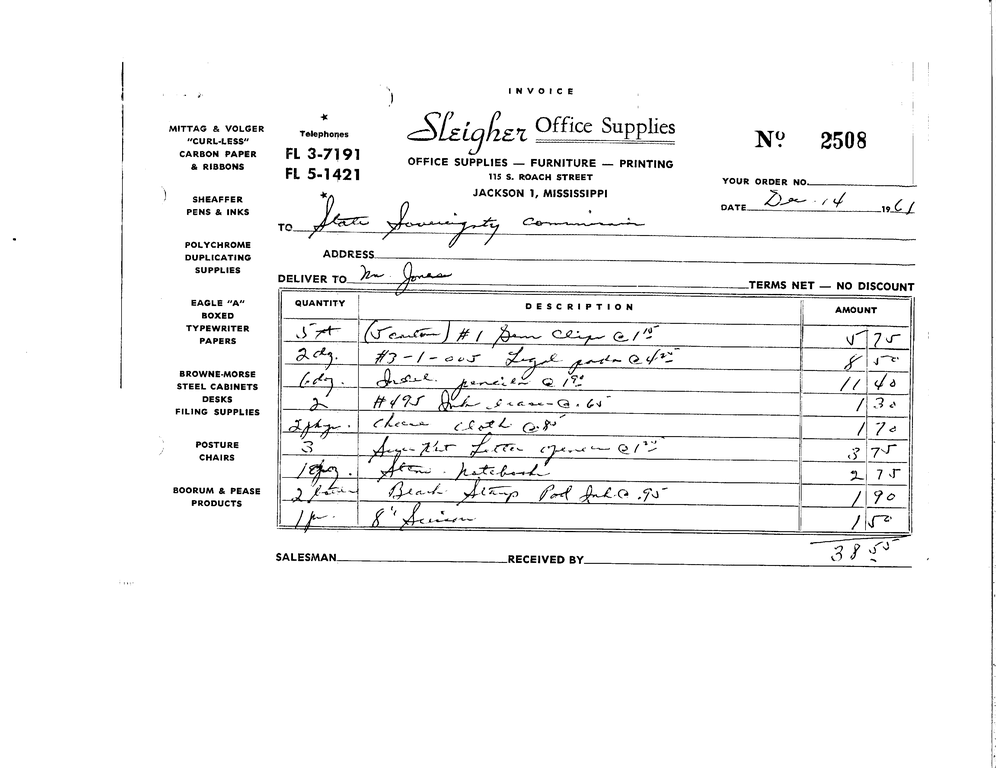 INVOICE
Sleigher Office Supplies
OFFICE SUPPLIES — FURNITURE — PRINTING
115 S. ROACH STREET
JACKSON 1, MISSISSIPPI
Telephones
FL 3-7191
FL 5-1421
Nº 2508
YOUR ORDER NO.
DATE Dec. 14 1961
MITTAG & VOLGER
"CURL-LESS"
CARBON PAPER
& RIBBONS
SHEAFFER
PENS & INKS
POLYCHROME
DUPLICATING
SUPPLIES
EAGLE "A"
BOXED
TYPEWRITER
PAPERS
BROWNE-MORSE
STEEL CABINETS
DESKS
FILING SUPPLIES
POSTURE
CHAIRS
BOORUM & PEASE
PRODUCTS
TO State Sovereignty Commission
ADDRESS
DELIVER TO Mr. Jones
TERMS NET — NO DISCOUNT
QUANTITY DESCRIPTION AMOUNT
(5 carton) #1 Gem Clips @ 1 15 5 75
2 dz. #3-1-005 Legal pads @ 4 25 8 50
6 dz. pencils @ 1 90 11 40
2 #495 Ink eraser @ .65 1 30
2 pkgs. Cheese cloth @ .85 1 70
3 Letter opener @ 1 25 3 75
Steno. Notebooks 2 75
2 Black Stamp Pad Ink @ .95 1 90
1 pr. 8" Scissors 1 50
38 55
SALESMAN RECEIVED BY